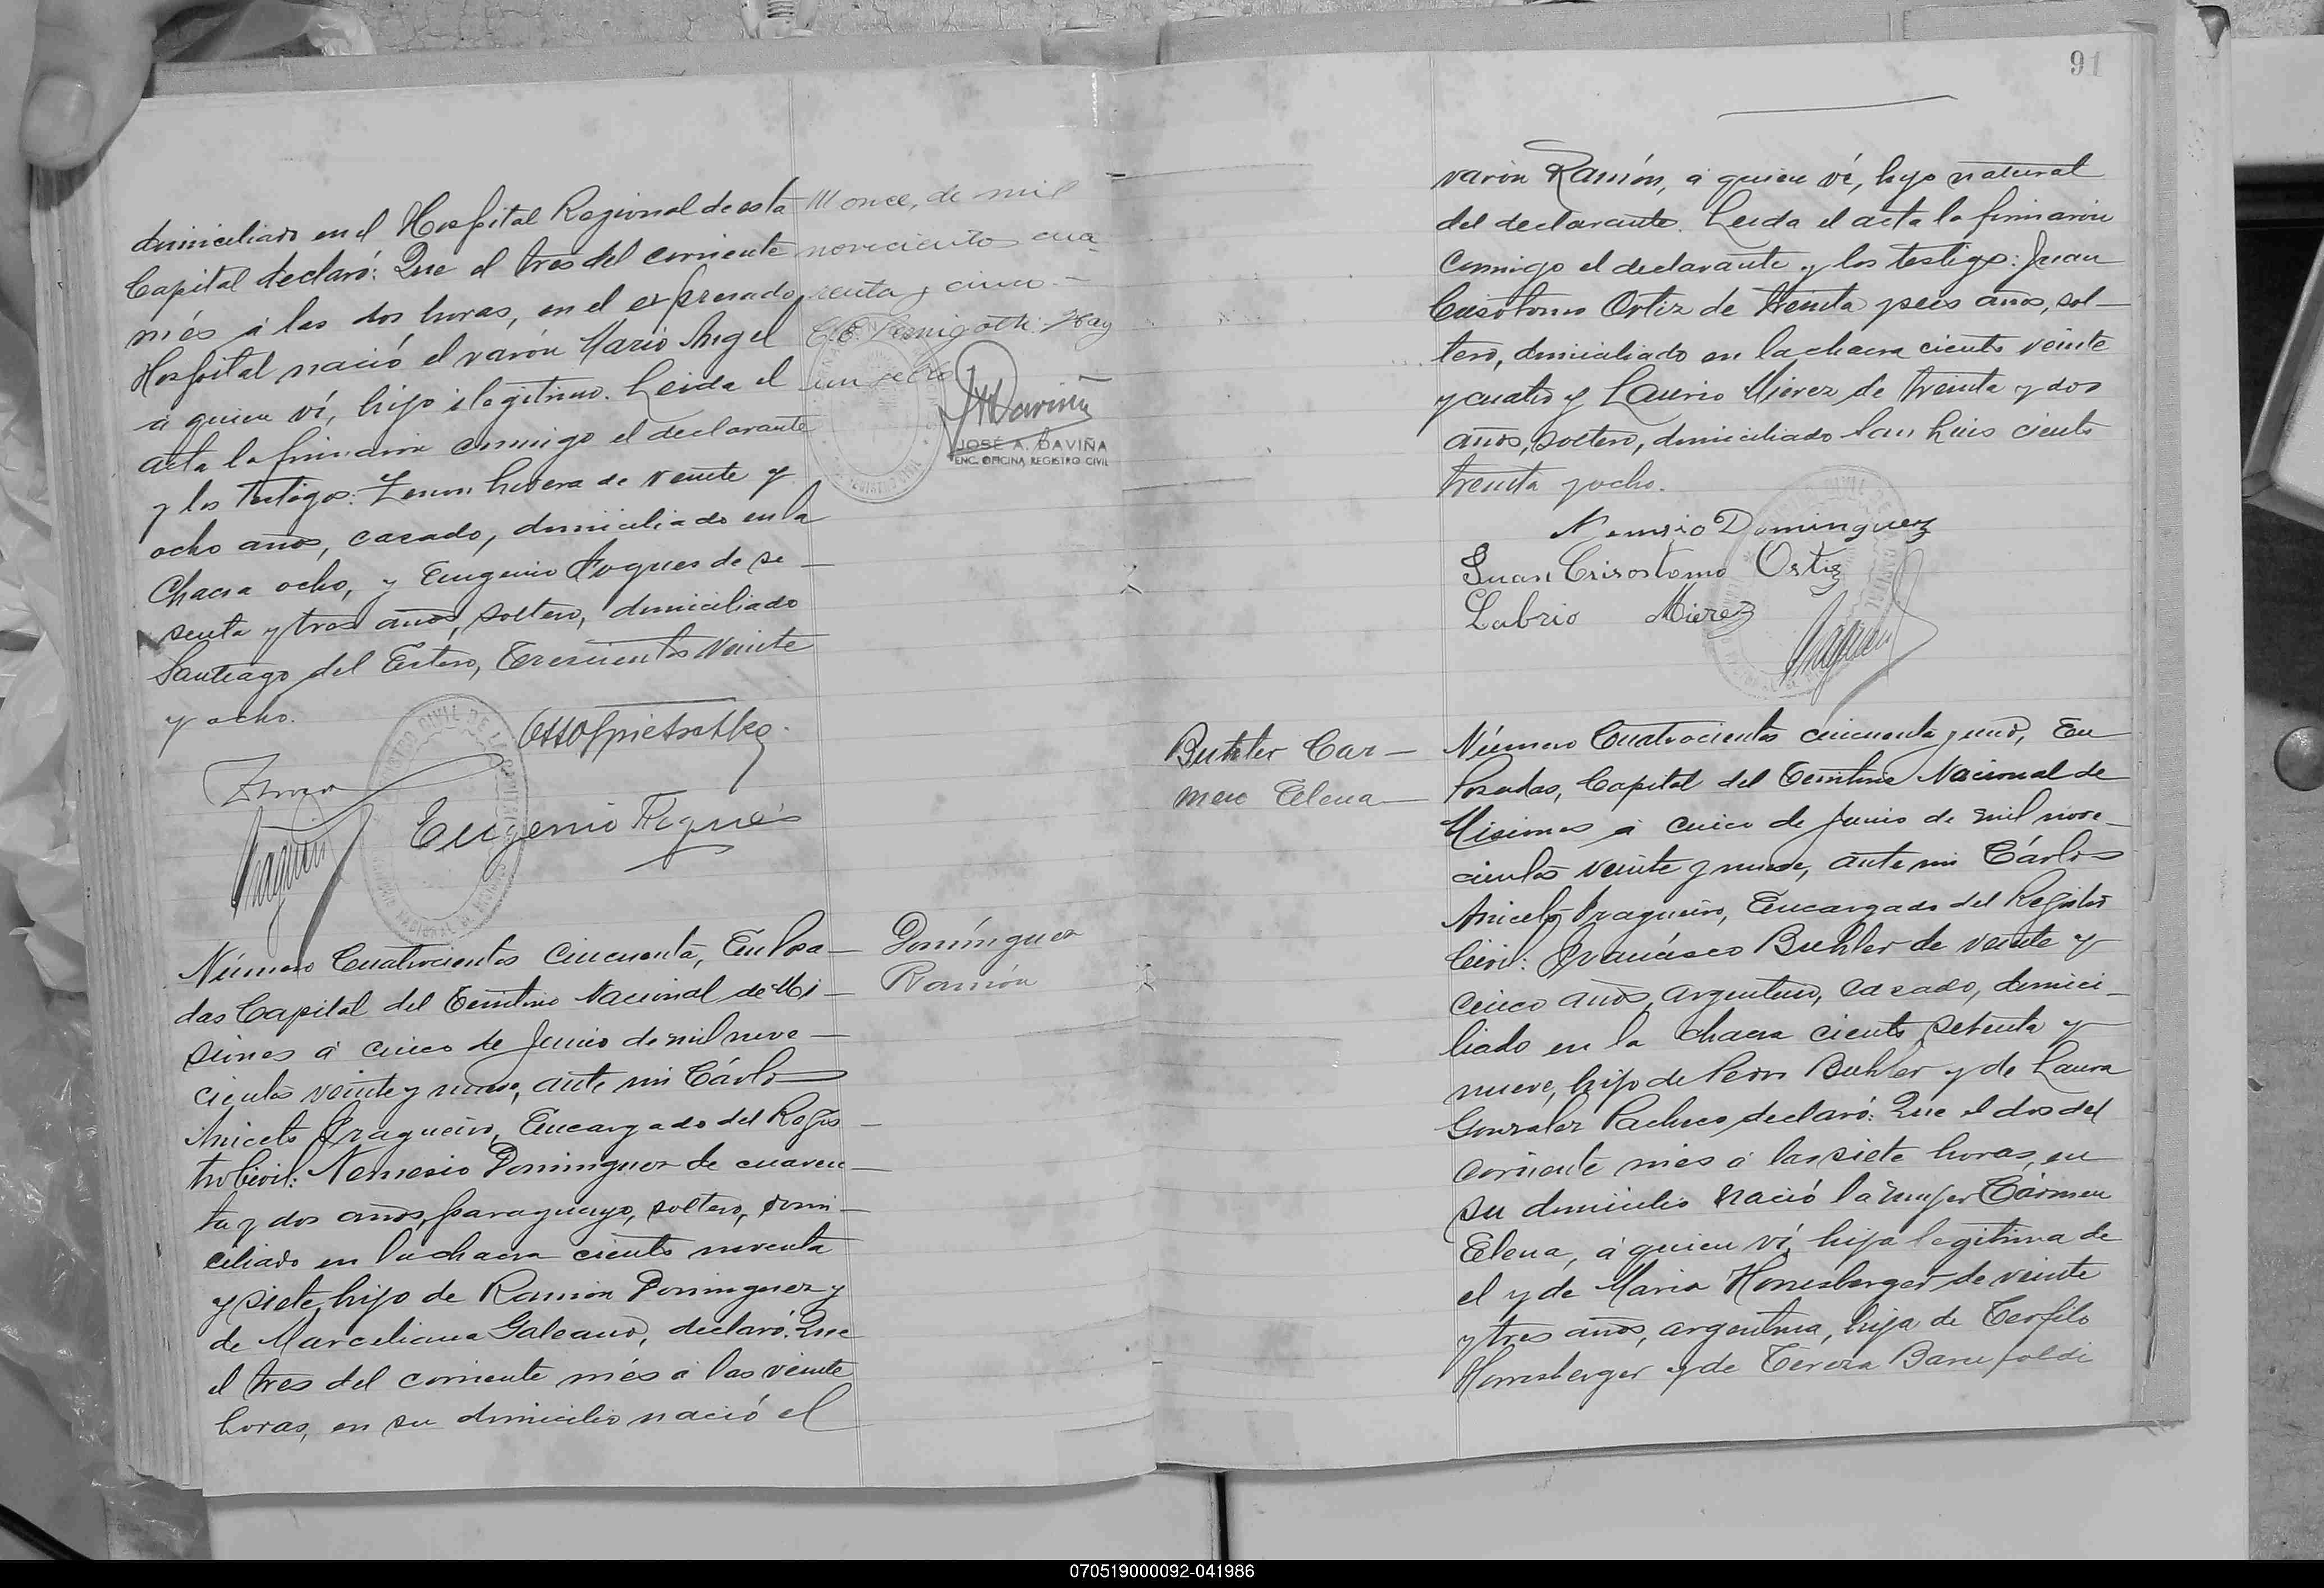 domiciliado en el Hospital Regional de esta
Capital declaró: Que el tres del corriente
més á las dos horas, en el expresado
Hospital nació el varón Mario Angel
á quien ví, hijo ilegitimo. Leida el
acta la firmaron conmigo el declarante
y los testigos: Zenon de veinte y
ocho anos, casado, domiciliado en la
Chacra ocho, y Eugenio Fogues de se_
senta y tres anos, soltero, domiciliado
Santiago del Estero, Trescientos veinte
y ocho.
Eugenio
REGISTRO CIVIL DE LA CAPITAL
once, de mil
novecientos cua_
renta y cinco.-
Hay
un sello
JOSÉ A. DAVIÑA
ENC. OFICINA REGISTRO CIVIL
Número Cuatrocientos Cincuenta, En Posa_
das Capital del Territorio Nacional de Mi_
siones á cinco de Junio de mil nove_
cientos veinte y nueve, ante mi Cárlos
Aniceto Fragueiro, Encargado del Regis_
tro Civil: Nemesio Dominguez de cuaren_
ta y dos anos, paraguayo, soltero, domi_
ciliado en la chacra ciento noventa
y siete, hijo de Ramón Dominguez y
de Marceliana Galeano, declaró: Que
el tres del corriente més á las veinte
horas, en su domicilio nació el
Domínguez
Ramón
91
varón Ramón, á quien ví, hijo natural
del declarante. Leida el acta la firmaron
conmigo el declarante y los testigos: Juan
Crisóstomo Ortiz de treinta y seis anos, sol_
tero, domiciliado en la chacra ciento veinte
y cuatro y Laurio Mierez de treinta y dos
anos, soltero, domiciliado San Luis ciento
treinta y ocho.
Nemesio Dominguez
Juan Crisostomo Ortiz
Labrio Mierez
Buhler Car_
men Elena_
Número Cuatrocientos cincuenta y uno, En
Posadas, Capital del Territorio Nacional de
Misiones á cinco de Junio de mil nove_
cientos veinte y nueve, ante mi Cárlos
Aniceto Fragueiro, Encargado del Registro
Civil: Francisco Buhler de veinte y
cinco anos, argentino, casado, domici_
liado en la chacra ciento setenta y
nueve, hijo de Pedro Buhler y de Laura
Gonzalez Pacheco declaró: Que el dos del
corriente més á las siete horas, en
su domicilio nació la mujer Cármen
Elena, á quien ví, hija legitima de
el y de Maria Honesberger de veinte
y tres anos, argentina, hija de Teofilo
Honesberger y de Teresa
070519000092-041986